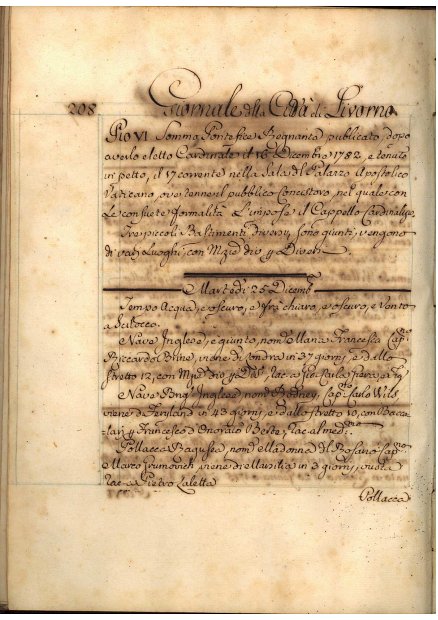 208
Giornale della Città di Livorno
Pio VI Sommo Pontefice Regnante publicato, dopo
averlo eletto Cardinale il 16 Dicembre 1782, e tenuto
in petto, il 17 corrente nella Sala del Palazo Apostolico
Vaticano, ove tenne il pubblico Concistoro, nel quale con
Le consuete formalità L'impose il Cappello Cardinalizio.
Tre piccoli Bastimenti diversi, sono giunti, vengono
di varj Luoghi, con Merc. div. p. Diversi
Martedì 25 Dicemb.
Tempo Acqua, e oscuro, e frà chiaro, e oscuro, e Vento
a Scilocco.
Nave Inglese, è giunto, nom. Maria Francesca Cap.
Riccardo, viene di Londra in 37 giorni, e dallo
Stretto 12, con Merc. div.
Nave Inglese nom. Rodney, Cap. Carlo Wils,
viene di in 43 giorni, e dallo Stretto 10, con Bacca-
lari p. Francesco Enorato Berte, rac. al med.mo
Pollacca Ragusea nom. Madonna del Rosario Cap.
Marco, viene di Marsilia in 3 giorni, vuota
rac. a Pietro Laletta
Pollacca